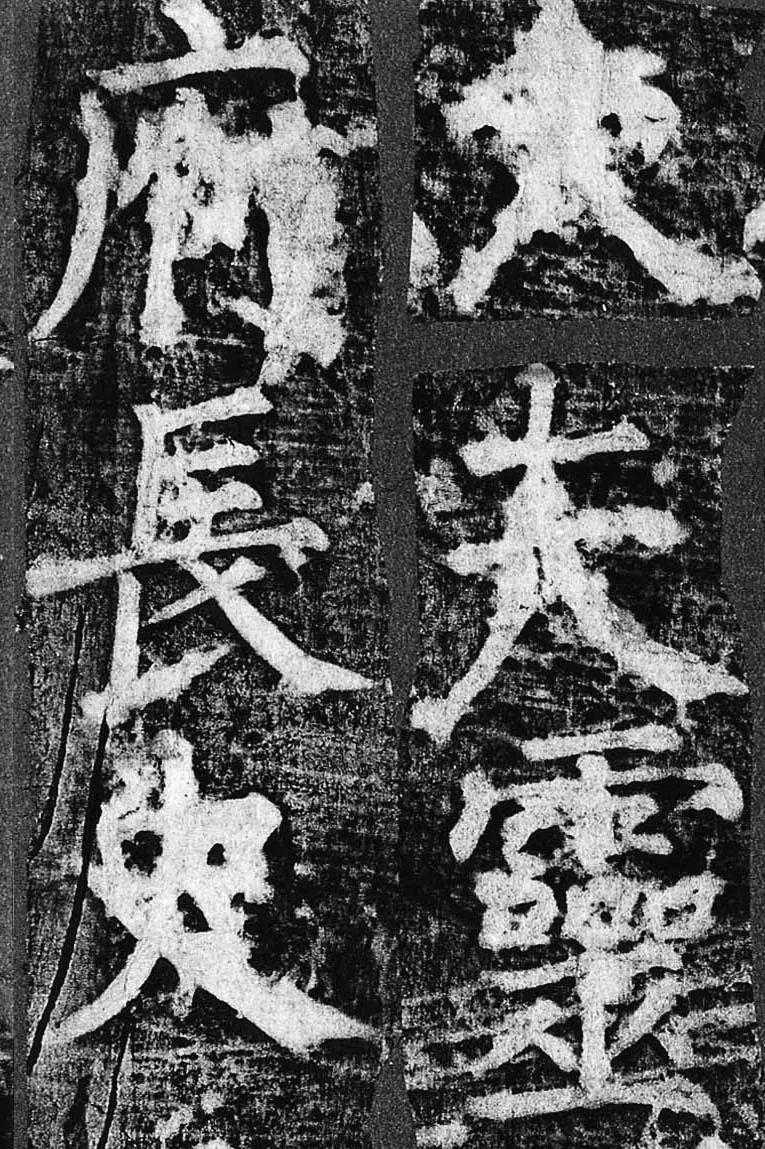 大夫靈
府長史